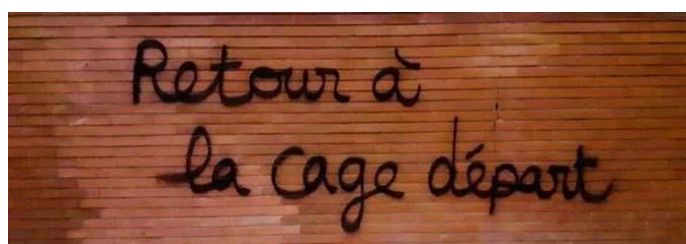 Retour à
la cage départ